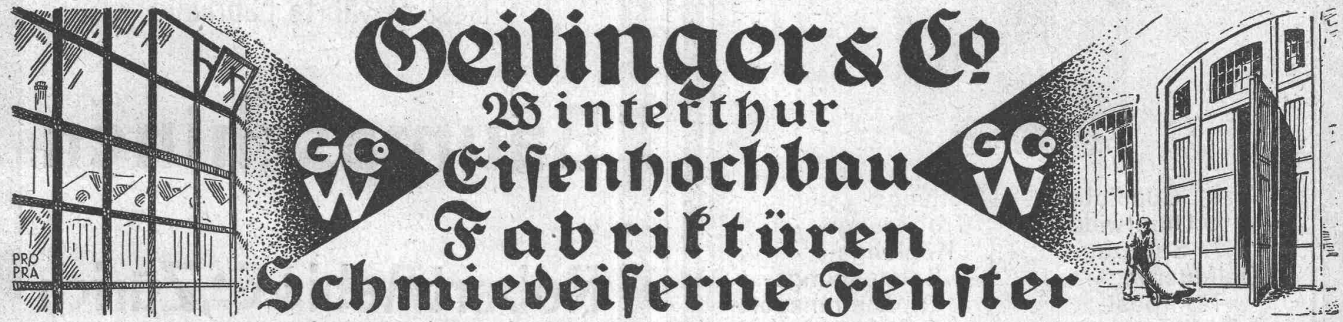 Geilinger & Co.
Winterthur
Eiſenhochbau
Fabriktüren
Schmiedeiſerne Fenſter
GCo
W
GCo
W
PRO
PRA